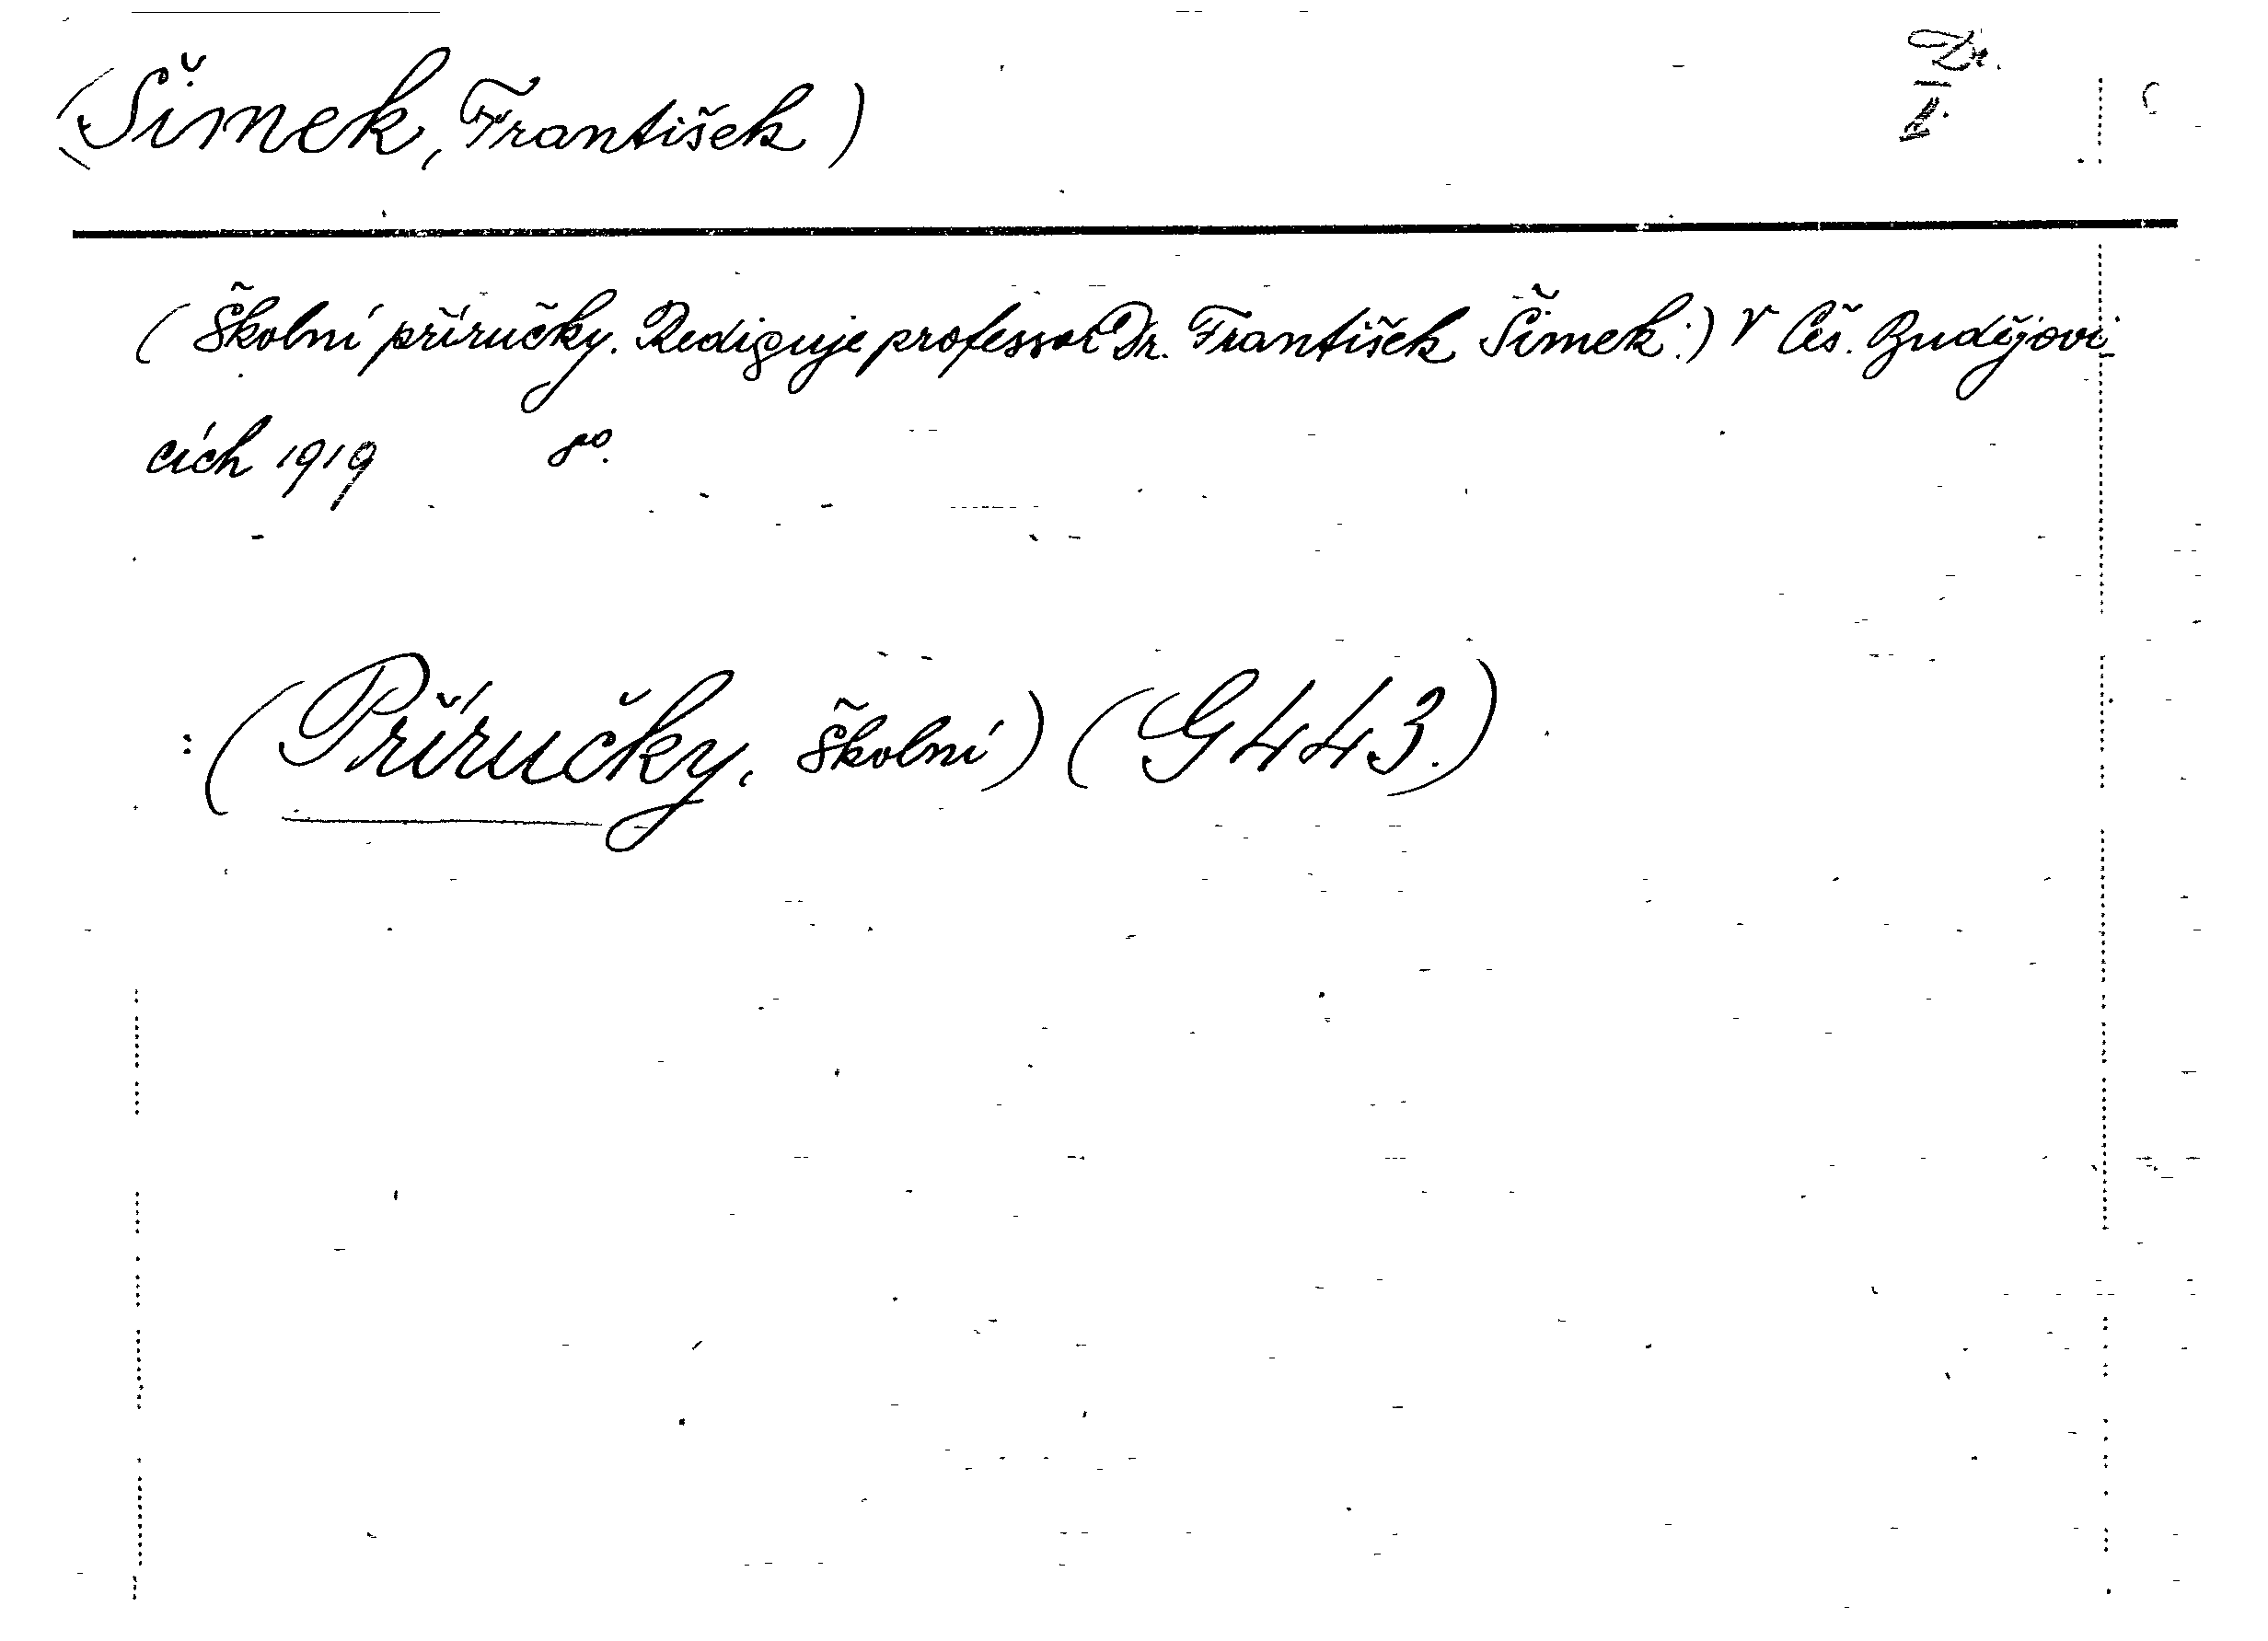 (Šimek, František)
Dr.
(Školní příručky. Rediguje professor Dr. František Šimek.) V Čes. Budějovi-
cích 1919 8º.
: (Příručky, školní) (G 443.)